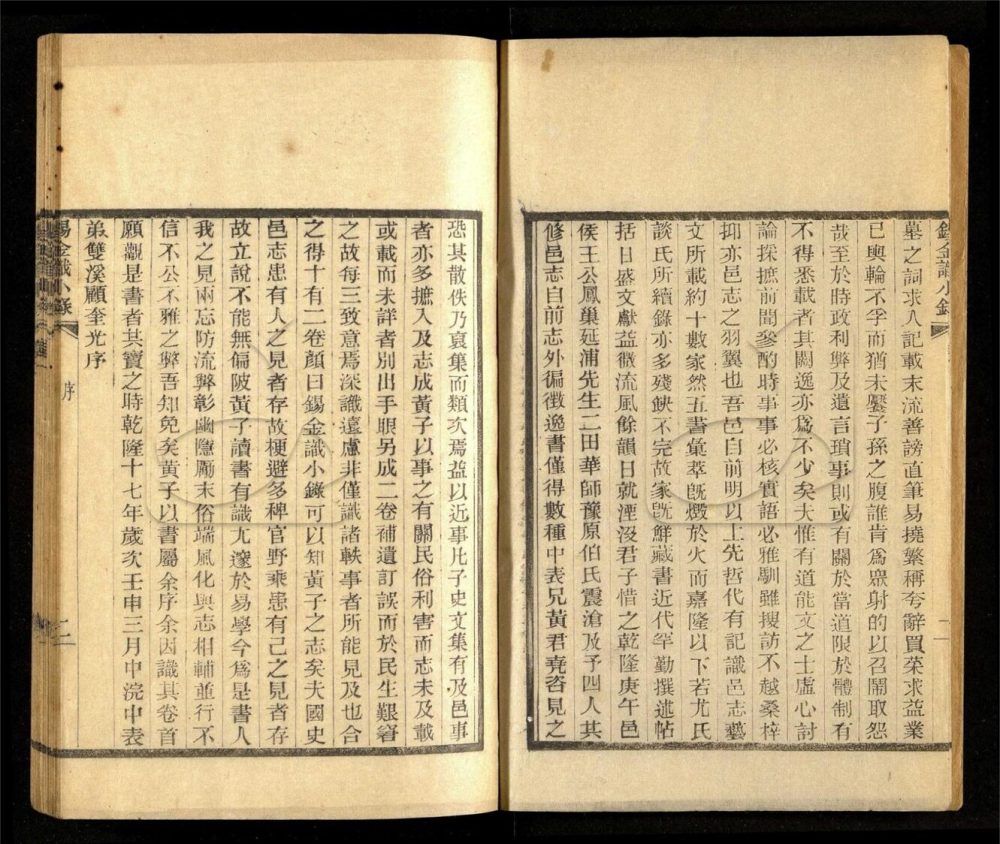 錫金識小錄
二
墓之詞求人記載末流善謗直筆易撓繁稱夸辭買菜求益業
已輿輪不孚而猶未饜子孫之腹誰肯爲眾射的以召鬧取怨
哉至於時政利弊及遺言瑣事則或有關於當道限於體制有
不得悉載者其闕逸亦爲不少矣大惟有道能文之士虛心討
論採摭前聞參酌時事事必核實語必雅馴雖搜訪不越桑梓
抑亦邑志之羽翼也吾邑自前明以上先哲代有記識邑志藝
文所載約十數家然五書彙萃旣燬於火而嘉隆以下若尤氏
談氏所續錄亦多殘缺不完故家旣鮮藏書近代罕勤撰述帖
括日盛文獻益微流風餘韻日就湮沒君子惜之乾隆庚午邑
侯王公鳳巢延浦先生二田華師豫原伯氏震滄及予四人其
修邑志自前志外徧徵逸書僅得數種中表兄黃君堯咨見之
恐其散佚乃裒集而類次焉益以近事凡子史文集有及邑事
者亦多摭入及志成黃子以事之有關民俗利害而志未及載
或載而未詳者別出手眼另成二卷補遺訂誤而於民生艱窘
之故每三致意焉深識遠慮非僅識諸軼事者所能見及也合
之得十有二卷顏曰錫金識小錄可以知黃子之志矣夫國史
邑志患有人之見者存故梗避多稗官野乘患有己之見者存
故立說不能無偏陂黃子讀書有識尤邃於易學今爲是書人
我之見兩忘防流弊彰幽隱厲末俗端風化與志相輔並行不
信不公不雅之弊吾知免矣黃子以書屬余序余因識其卷首
願觀是書者其寶之時乾隆十七年歲次壬申三月中浣中表
弟雙溪顧奎光序
錫金識小錄
序
二